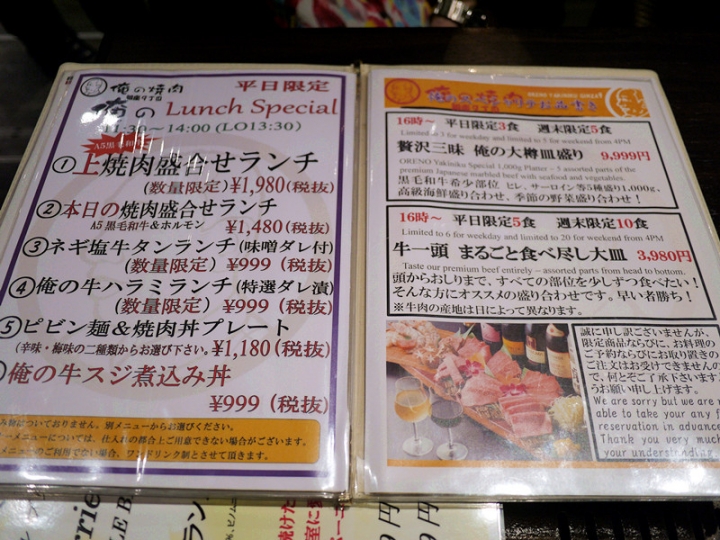 俺の焼肉
銀座9丁目
平日限定
俺の Lunch Special
11:30～14:00 (LO13:30)
A5黒毛和牛
①上焼肉盛合せランチ
(数量限定) ¥1,980(税抜)
②本日の焼肉盛合せランチ
A5黒毛和牛&ホルモン ¥1,480(税抜)
③ネギ塩牛タンランチ(味噌ダレ付)
(数量限定) ¥999 (税抜)
④俺の牛ハラミランチ(特選ダレ漬)
(数量限定) ¥999 (税抜)
⑤ピビン麺&焼肉丼プレート
(辛味・梅味の二種類からお選び下さい。¥1,180(税抜)
俺の牛スジ煮込み丼
¥999 (税抜)
み物はついておりません。別メニューからお選びください。
ーメニューについては、仕入れの都合上ご用意できない場合がございます。
メニューのご利用でない場合、ワンドリンク制とさせて頂きます。
16時～ 平日限定3食 週末限定5食
Limited to 3 for weekday and limited to 5 for weekend from 4PM
贅沢三昧 俺の大樽皿盛り 9,999円
ORENO Yakiniku Special 1,000g Platter - 5 assorted parts of the
premium Japanese marbled beef with seafood and vegetables.
黒毛和牛希少部位 ヒレ、サーロイン等5種盛り1,000g、
高級海鮮盛り合わせ、季節の野菜盛り合わせ!
16時～ 平日限定5食 週末限定10食
Limited to 6 for weekday and limited to 20 for weekend from 4PM
牛一頭 まるごと食べ尽し大皿 3,980円
Taste our premium beef entirely - assorted parts from head to bottom.
頭からおしりまで、すべての部位を少しずつ食べたい!
そんな方にオススメの盛り合わせです。早い者勝ち!
※牛肉の産地は日によって異なります。
誠に申し訳ございませんが、
限定商品ならびに、お料理の
ご予約ならびにお取り置きの
ご注文はお受けできませんの
で、何とぞご了承下さいます
うお願い申し上げます。
We are sorry but we are n
able to take your any f
reservation in advance
Thank you very much
your understandi